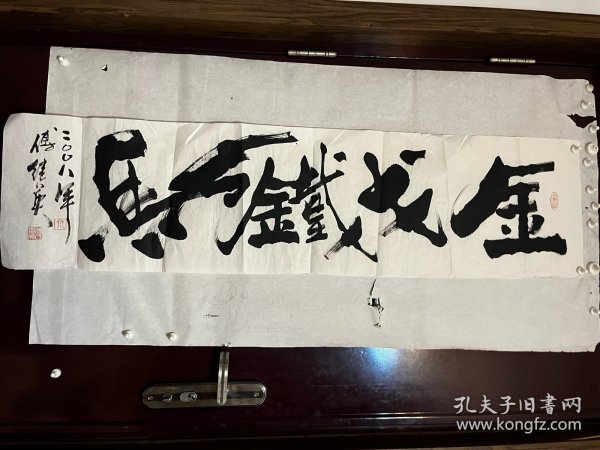 金戈鐵馬
二〇〇八年
傅继英
孔夫子旧书网
www.kongfz.com